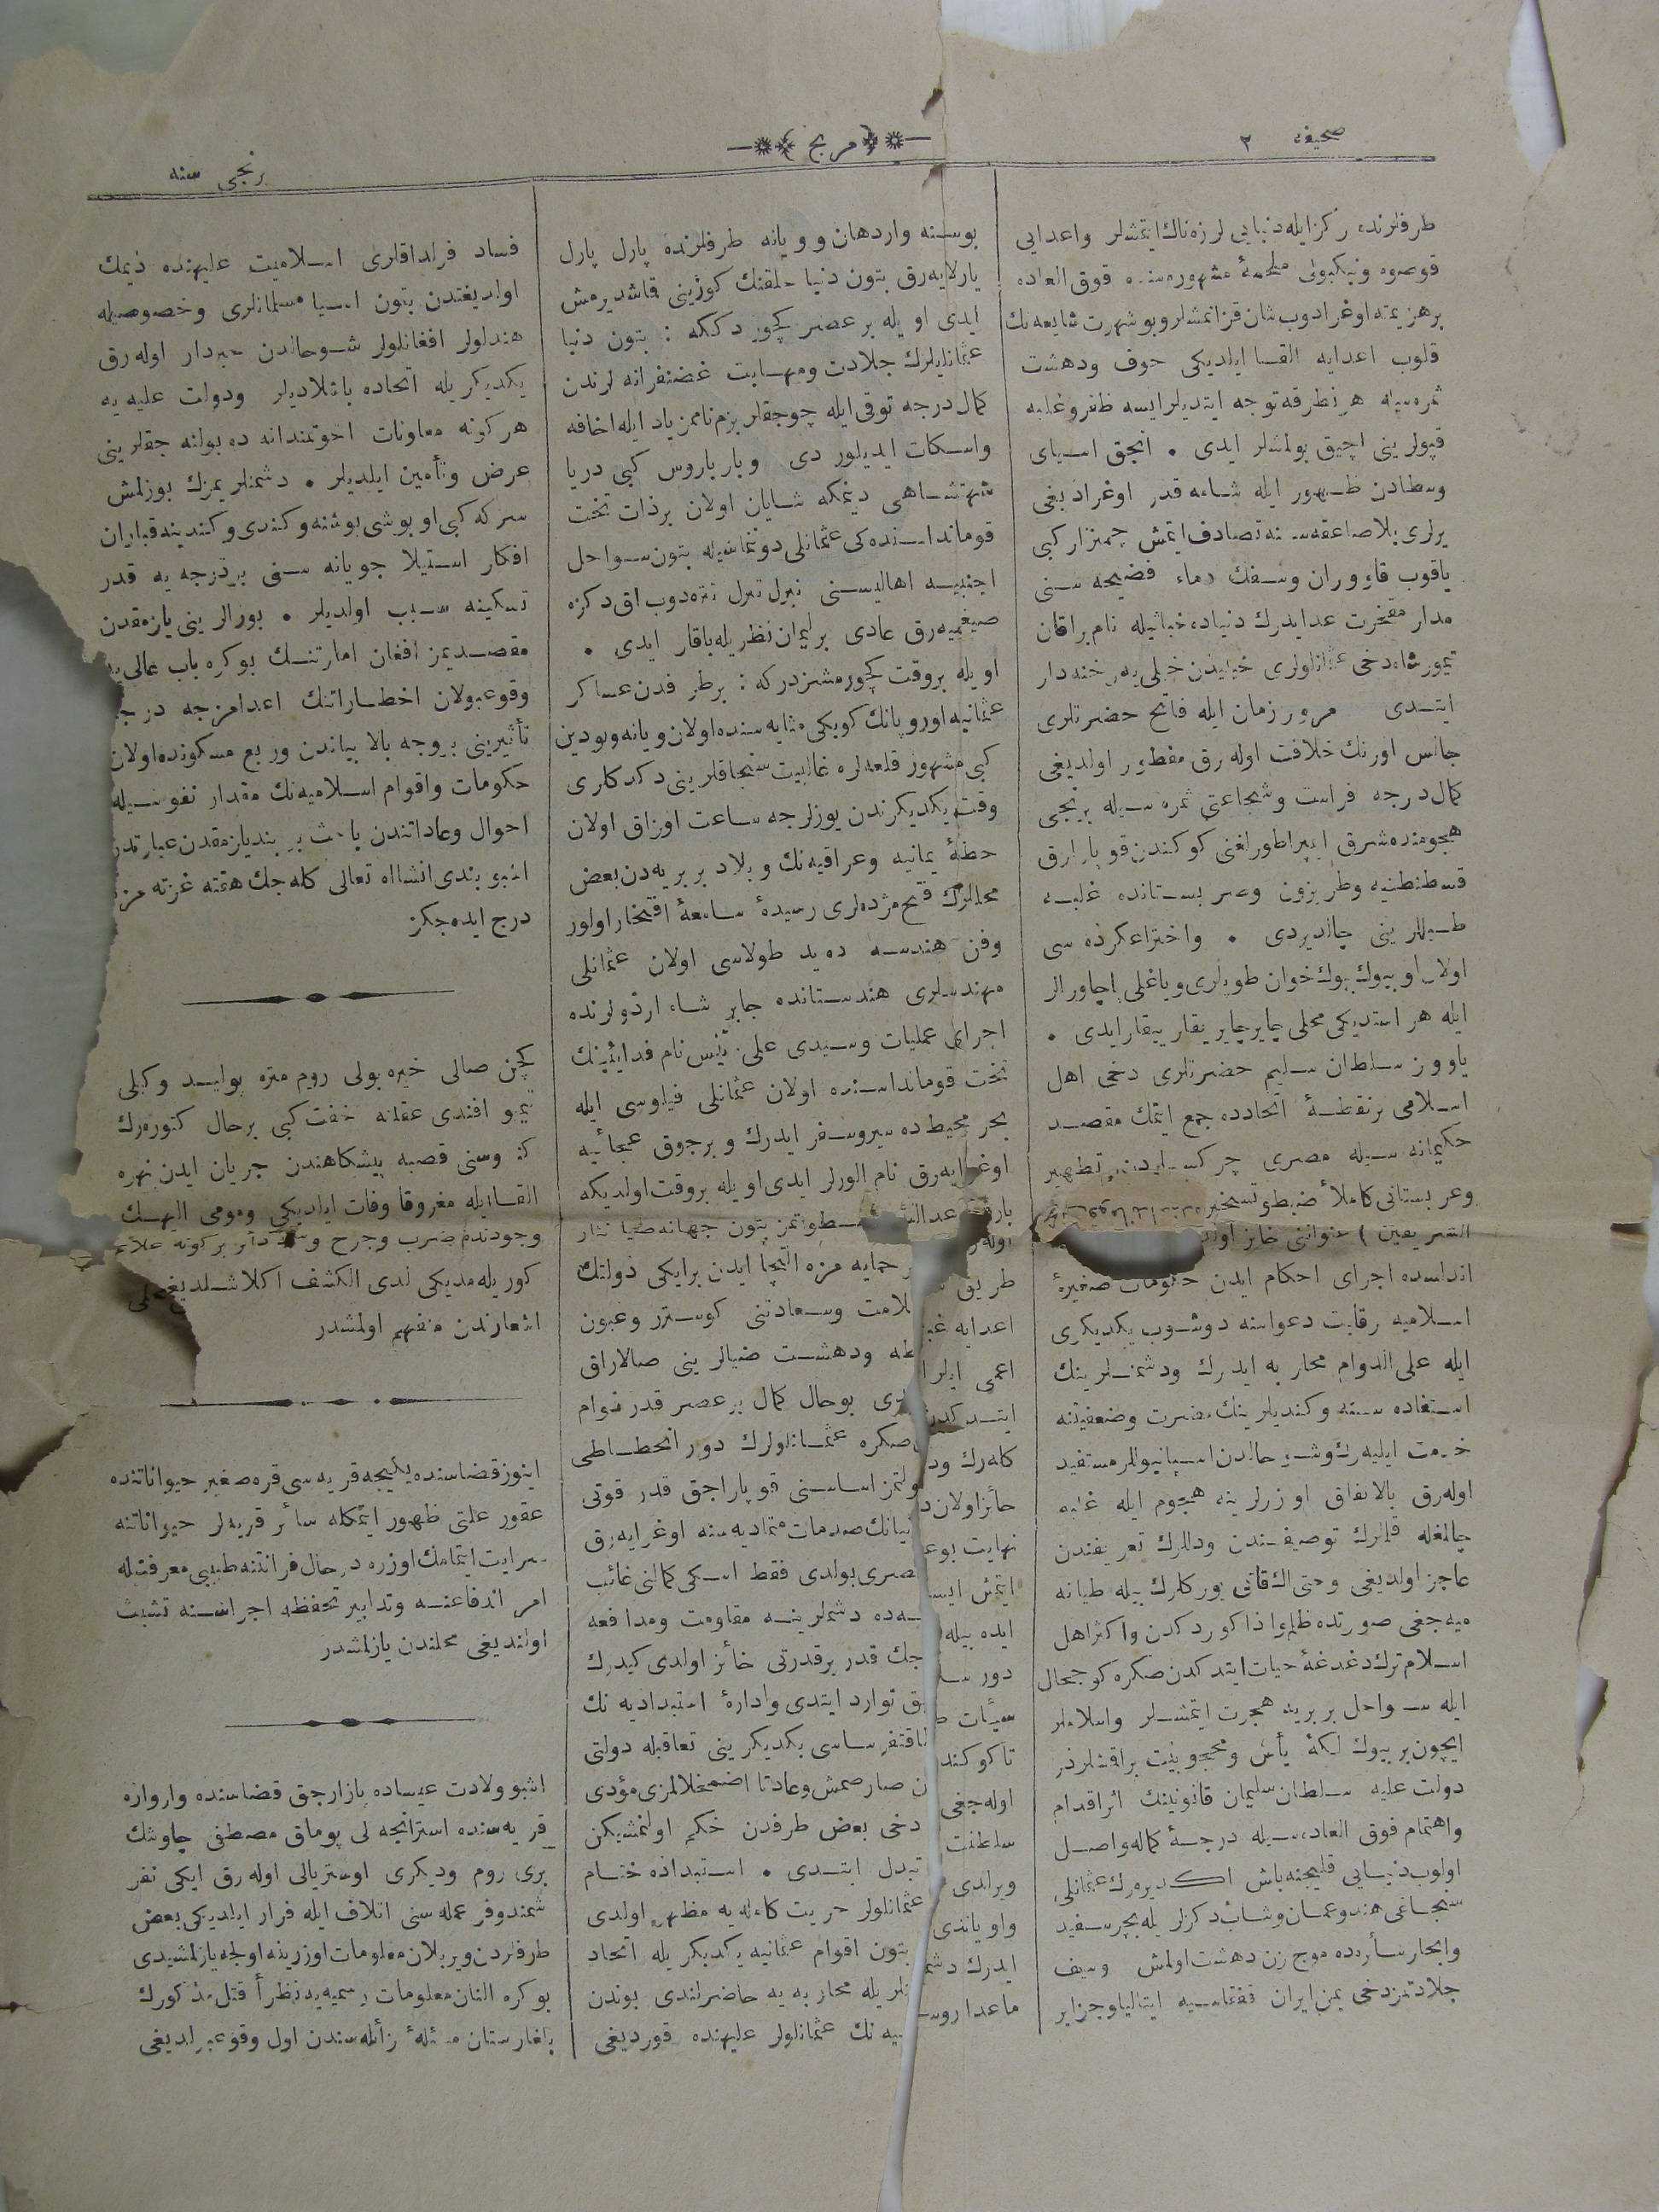 صحیفه ٢
مریخ
برنجی سنه
طرفلرنده رکز ایله دنیایی لرزه ناك ایتمشلر واعدایی
قوصوه ونیکبولی ملحمهٔ مشهوره سنده فوق العاده
برهزیمته اوغرادوب شان قزانمشلر وبو شهرت شایعه نك
قلوب اعدایه القا ایلدیکی خوف ودهشت
ثمره سیله هر نطرفه توجه ایتدیلر ایسه ظفر وغلبه
قپولرینی اچیق بولمشلر ایدی . انجق اسیای
وسطادن ظهور ایله شامه قدر اوغرادیغی
یرلری بلا صاعقه سنه تصادف ایتمش چمنزار کبی
یاقوب قاووران وسفك دماء فضیحه سنی
مدار مفخرت عد ایدرك دنیاده خباثتله نام براقان
تیمورشاه دخی عثمانلولری خیلیدن خیلی یه رخنه دار
ایتدی مرور زمان ایله فاتح حضرتلری
جالس اورنك خلافت اوله رق مفطور اولدیغی
کمال درجه فراست وشجاعتی ثمره سیله برنجی
هجومنده شرق ایپراطورلغنی کوکندن قوپارارق
قسطنطنیه وطربزون وعربستانده غلبه
طبللرینی چالدیردی . واختراعکرده سی
اولان او بیوك بیوك خوان طوپلری ویاغلی پاچاورالر
ایله هر استدیکی محلی چایر چایر یقار ییقار ایدی .
یاووز سلطان سلیم حضرتلری دخی اهل
اسلامی برنقطهٔ اتحادده جمع ایتمك مقصد
حکیمانه سیله مصری چرکسلردن تطهیر
وعربستانی کاملاً ضبط وتسخیر
الشریفین ) عنواننی حائز اول
اندلسده اجرای احکام ایدن حکومات صغیرهٔ
اسلامیه رقابت دعواسنه دوشوب یکدیکری
ایله علی الدوام محاربه ایدرك ودشمنلرینك
استفاده سنه وکندیلرینك مضرت وضعفیتنه
خدمت ایلیه رك وشو حالدن اسپانیوللر مستفید
اوله رق بالاتفاق اوزرلرینه هجوم ایله غلبه
چالمغله قلملرك توصیفندن ودللرك تعریفندن
عاجز اولدیغی وحتی الك قاتی یورکلرك بیله طیانه
میه جغی صورتده ظلم واذا کوردکدن واکثر اهل
اسلام ترك دغدغهٔ حیات ایتدکدن صکره کوجحال
ایله سواحل بربریه هجرت ایتمشلر واسلاملر
ایچون بر بیوك لکهٔ یأس ومحجوبیت براقمشلردر
دولت علیه سلطان سلیمان قانونینك اثر اقدام
واهتمام فوق العاده سیله درجهٔ کماله واصل
اولوب دنیایی قلیجنه باش اکدیره رك عثمانلی
سنجاغی هند وعمان وشاب دکزلریله بحر سفید
وابحار سائره ده موج زن دهشت اولمش وسیف
جلادتمزدخی یمن ایران قفقاسیه ایتالیا وجزایر
بوسنه واردهان وویانه طرفلرنده پارل پارل
پارلایه رق بتون دنیا خلقنك کوزینی قاشدیرمش
ایدی اویله بر عصر کچوردککه : بتون دنیا
عثمانلیلرك جلادت ومهابت غضنفرانه لرندن
کمال درجه توقی ایله چوجقلر بزم نامزیاد ایله اخافه
واسکات ایدیلوردی وبارباروس کبی دریا
شهنشاهی دینمکه شایان اولان برذات تخت
قومانداسنده کی عثمانلی دونانماسیله بتون سواحل
اجنبیه اهالیسنی تیرل تیرل تتره دوب اق دکزه
صیغمیه رق عادی برلیمان نظریله باقار ایدی .
اویله بروقت کچورمشزدرکه : برطرفدن عساکر
عثمانیه اوروپانك کوبکی مثابه سنده اولان ویانه وبودین
کبی مشهور قلعه لره غالبیت سنجاقلرینی دکدکلری
وقت یکدیکرندن یوزلرجه ساعت اوزاق اولان
خطهٔ یمانیه وعراقیه نك وبلاد بربریه دن بعض
محللرك فتح مژده لری رسیدهٔ سامعهٔ افتخار اولور
وفن هندسه ده ید طولاسی اولان عثمانلی
مهندسلری هندستانده جابر شاه اردولرنده
اجرای عملیات وسیدی علی رئیس نام فدایئینك
تخت قومانداسنده اولان عثمانلی فیلوسی ایله
بحر محیط ده سیر وسفر ایدرك وبرچوق عجائبه
اوغرایه رق نام الورلر ایدی اویله بروقت اولدیکه
بارقهٔ عدالت سطوتمز بتون جهانه ضیا نثار
اوله ر
طریق سلامت وسعادتنی کوستر وعیون
اعدایه غبطه ودهشت ضیالرینی صالارق
اعمی ایلر بوحال کمال بر عصر قدر دوام
ایتدکدن صکره عثمانلولرك دور انحطاطی
کله رك ودولتمز اساسنی قوپاراجق قدر قوتی
حائز اولان دنیانك صدمات متمادیه سنه اوغرایه رق
نهایت بو عصری بولدی فقط اسکی کمالنی غائب
ایتمش ایسه ده دشمنلرینه مقاومت ومدافعه
ایده بیله جك قدر برقدرتی حائز اولدی کیدرك
سیئات توارد ایتدی وادارهٔ استبدادیه نك
طاقتفرساسی یکدیکرینی تعاقبله دولتی
تا کوکندن صارصمش وعادتا اضمحلالمزی مؤدی
اوله جغی دخی بعض طرفدن حکم اولنمشیکن
سلطنت تبدل ایتدی . استبداده ختام
ویرلدی عثمانلولر حریت کامله یه مظهر اولدی
واویاندی بتون اقوام عثمانیه یکدیکریله اتحاد
ایدرك دشمنلریله محاربه یه حاضرلندی بوندن
ماعدا روسیه نك عثمانلولر علیهنده قوردیغی
فساد فرلداقلری اسلامیت علیهنده دیمك
اولدیغندن بتون اسیا مسلمانلری وخصوصیله
هندلولر افغانلولر شو حالدن خبردار اوله رق
یکدیکریله اتحاده باشلادیلر ودولت علیه یه
هر کونه معاونات اخوتمندانه ده بولنه جقلرینی
عرض وتأمین ایلدیلر . دشمنلریمزك بوزلمش
سرکه کبی او بوشی بوشنه وکندی وکندینه قباران
افکار استیلا جویانه سنی بردرجه یه قدر
تسکینه سبب اولدیلر . بورالرینی یازمقدن
مقصدیمز افغان امارتنك بوکره باب عالی یه
وقوعبولان اخطاراتنك اعدامزجه درجهٔ
تأثیرینی بروجه بالا بیاندن وربع مسکونده اولان
حکومات واقوام اسلامیه نك مقدار نفوسیله
احوال وعاداتندن باحث بر بند یازمقدن عبارتدر
اشبو بندی انشاالله تعالی کله جك هفته غزته مزه
درج ایده جکز
کچن صالی خیره بولی روم متره پولید وکیلی
افندی عقلنه خفت کبی برحال کتوره رك
کندوسنی قصبه پیشکاهندن جریان ایدن نهره
القا ایله مغروقا وفات ایلدیکی ومومی الیهك
وجودنده ضرب وجرح دائر برکونه علائم
کوریله مدیکی لدی الکشف اکلاشلدیغی محلی
اشعارندن منفهم اولمشدر
اینوز قضاسنده یکیجه قریه سی قره صغیر حیواناتنده
عقور علتی ظهور ایتمکله سائر قریه لر حیواناتنه
سرایت ایتمامك اوزره درحال قرانتنه طبیبی معرفتیله
امر اندفاعنه وتدابیر تحفظه اجراسنه تشبث
اولندیغی محلندن یازلمشدر
اشبو ولادت عیساده پازارجق قضاسنده وارواره
قریه سنده استرانجه لی پوماق مصطفی چاوشك
بری روم ودیکری اوستریالی اوله رق ایکی نفر
شمندوفر عمله سنی اتلاف ایله فرار ایلدیکی بعض
طرفلردن ویریلان معلومات اوزرینه اولجه یازلمشیدی
بوکره النان معلومات رسمیه یه نظراً قتل مذکورك
بلغارستان مسئلهٔ زائله سندن اول وقوعبولدیغی